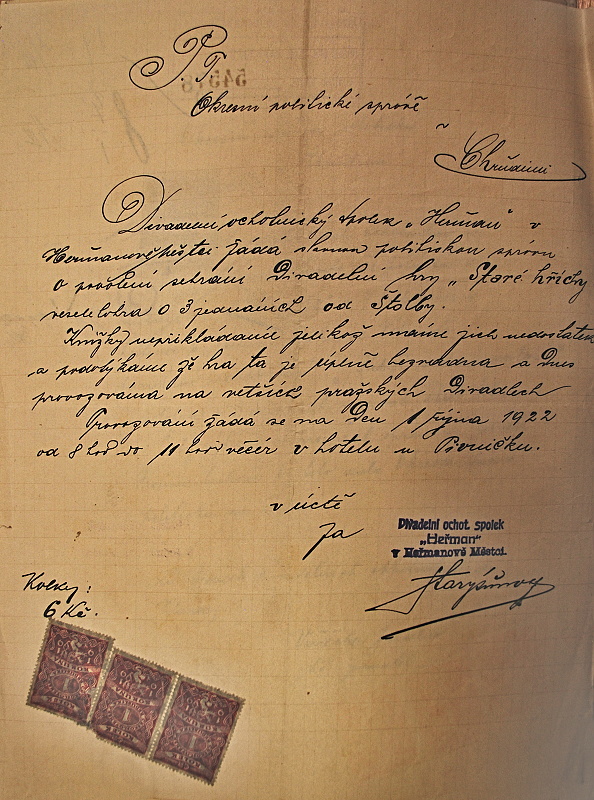 P. T.
Okresní politické správě
v
Chrudimi
Divadelní ochotnický spolek „Heřman" v
Heřmanověměstci žádá slavnou politickou správu
o povolení sehrání Divadelní hry „Staré hříchy
veselohra o 3 jednáních od Štolby.
Knížky nepřikládáme jelikož máme jich nedostatek
a podotýkáme že hra ta je úplně bezvadna a dnes
provozována na vetších pražských Divadlech
Provozování žádá se na Den 1 října 1922
od 8 hod do 11 hod večér v hotelu u
v úctě
Za
Divadelní ochot. spolek
„Heřman"
v Heřmanově Městci.
Kolky:
6 Kč.